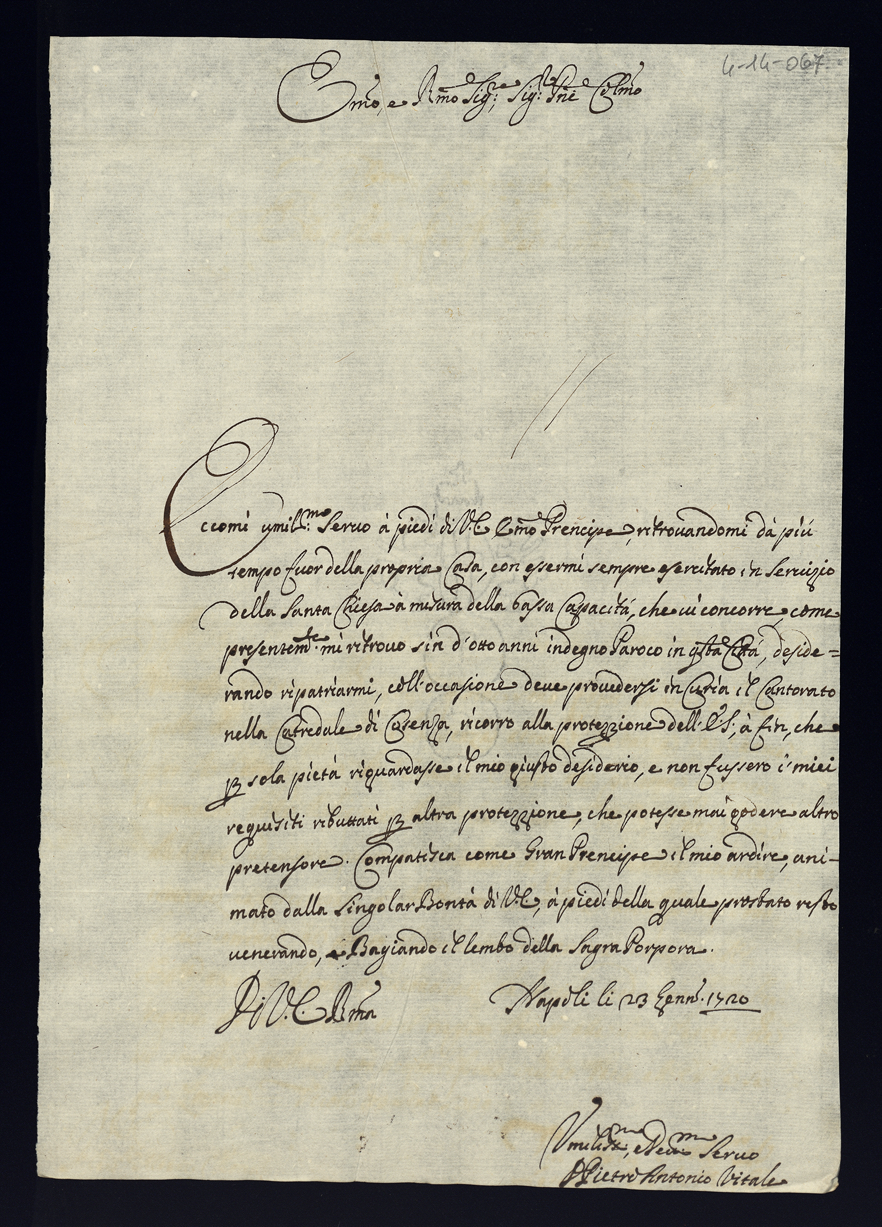 4-14-067
Emo, e Rmo Sigre: Sigr: Pne Colmo
Eccomi umilmo: Servo à piedi di V.E. Emo Prencipe, ritrovandomi dà più
tempo fuor della propria Casa, con essermi sempre esercitato in Servizio
della Santa Chiesa à misura della bassa Capacità, che vi concorre, come
presentemte: mi ritrovo sin d'otto anni indegno Paroco in qsta Città, deside=
rando ripatriarmi, coll'occasione deve provedersi in Curia il Cantorato
nella Catredale di Cosenza, ricorro alla protezzione dell'E.S:, à fin, che
p sola pietà riguardasse il mio giusto desiderio, e non fussero i miei
requisiti ributtati p altra protezzione, che potesse mai godere altro
pretensore. Compatisca come Gran Prencipe il mio ardire, ani-
mato dalla singolar Bontà di V.E., à piedi della quale prostato resto
venerando, e Bagiando il lembo della Sagra Porpora.
Di V.E. Rma Napoli li 23 Genn: 1720
Umilissmo, e Devmo Servo
D Pietro Antonio Vitale